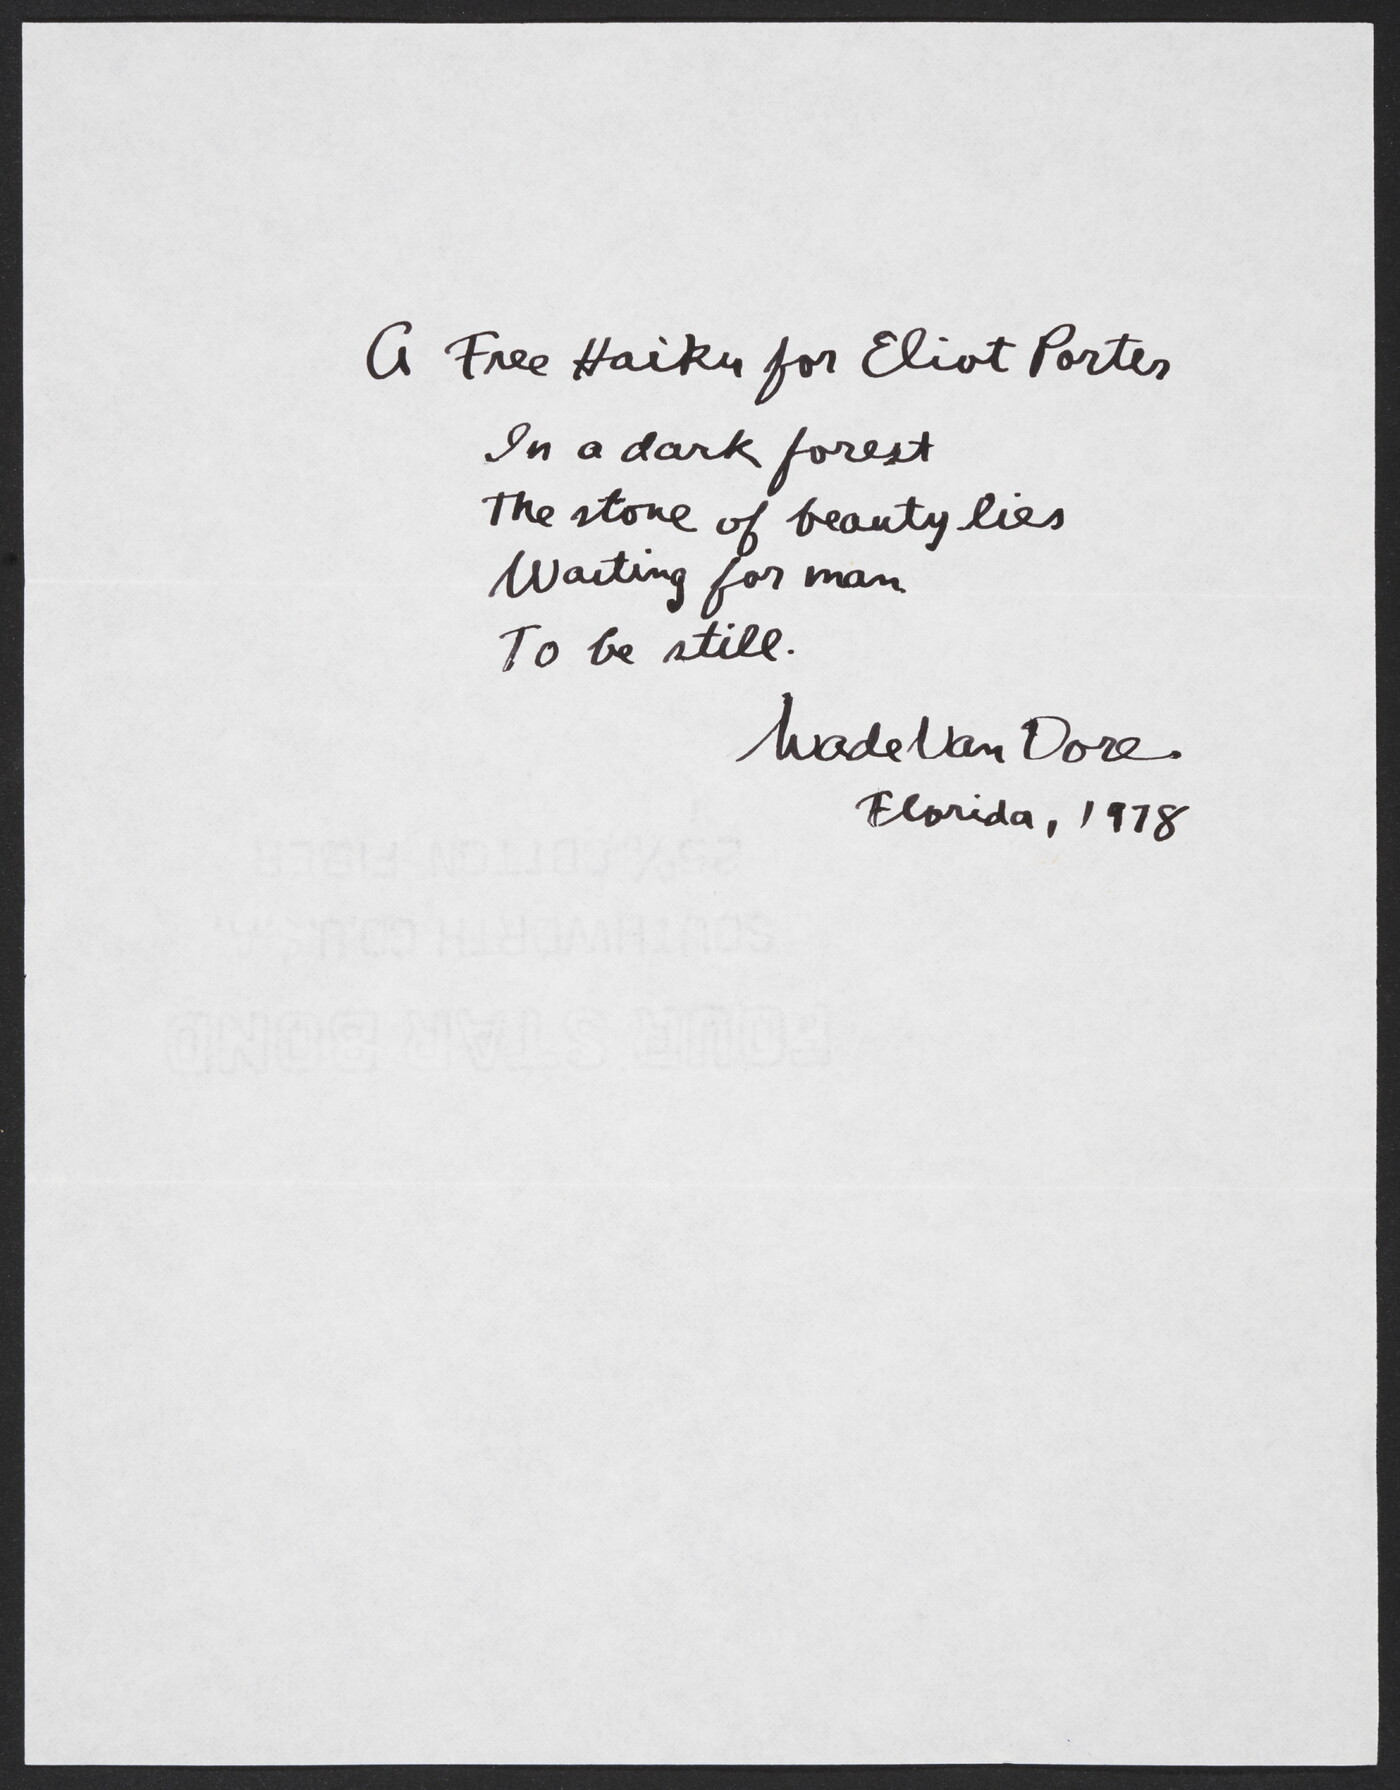 A Free Haiku for Eliot Porter
In a dark forest
The stone of beauty lies
Waiting for man
To be still.
Wade Van Dore.
Florida, 1978
25% COTTON FIBER
SOUTHWORTH CO. U.S.A.
FOUR STAR BOND